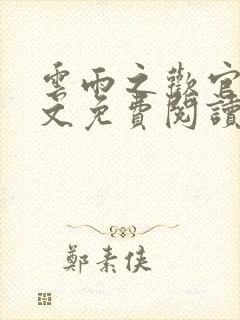 雲雨之歡官
文免費閱讀
鄭素俠